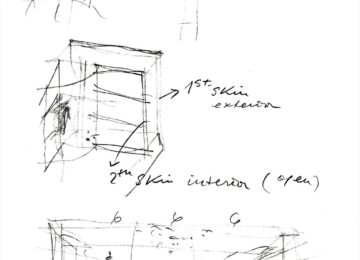 1st skin
exterior
2nd skin interior (open)
6 6 6